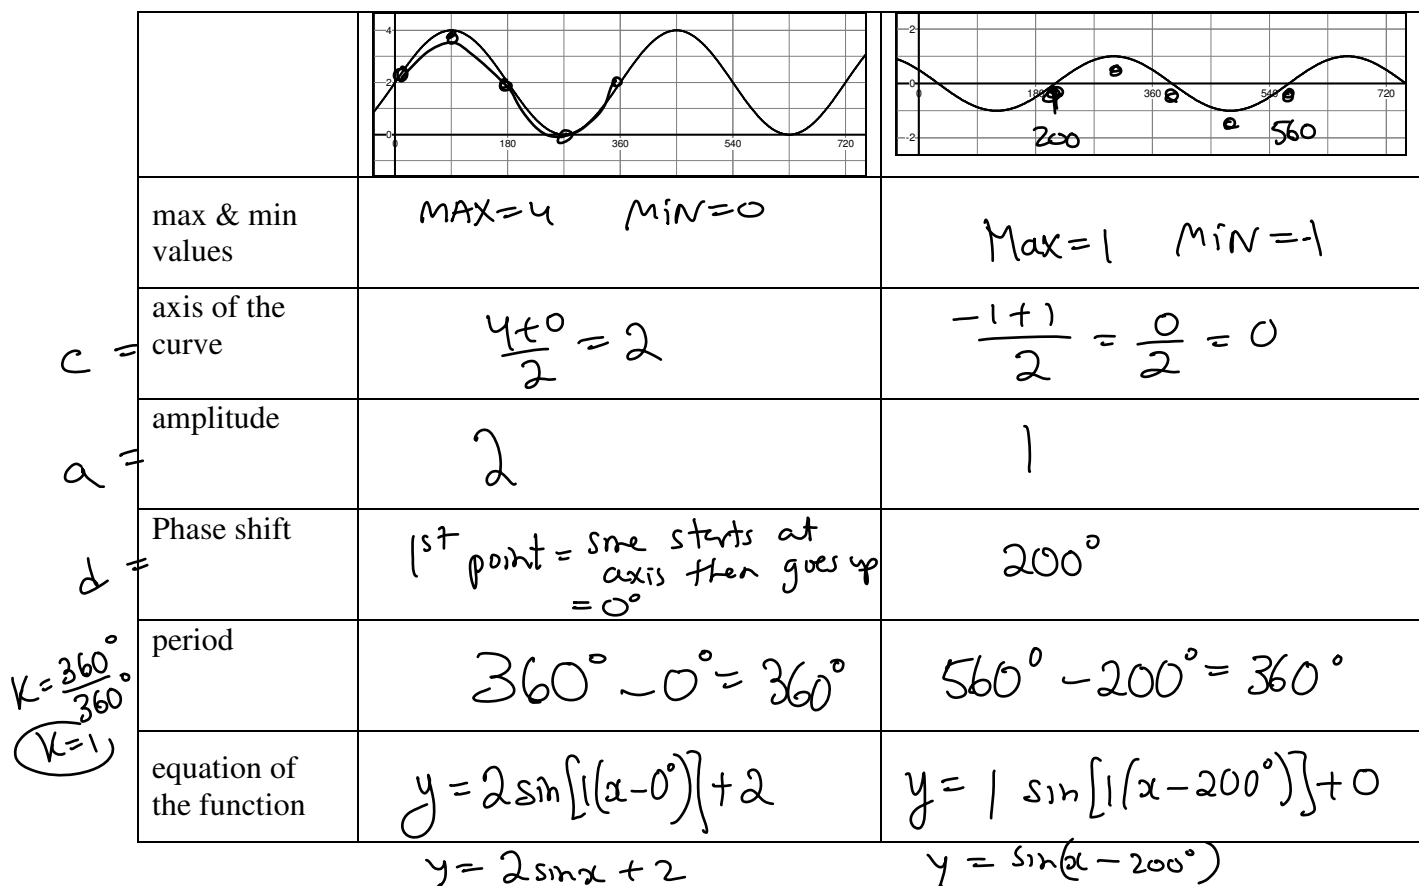 4
2
0
0 180 360 540 720
2
0
-2
0 180 360 540 720
200 560
max & min
values
MAX=4 MIN=0
Max=1 MIN=-1
c =
axis of the
curve
4+0/2 = 2
-1+1/2 = 0/2 = 0
a =
amplitude
2
1
d =
Phase shift
1st point = sine starts at
axis then goes up
= 0°
200°
K=360°/360°
K=1
period
360° - 0° = 360°
560° - 200° = 360°
equation of
the function
y = 2sin[1(x-0°)]+2
y = 1 sin[1(x-200°)]+0
y = 2sinx + 2
y = sin(x-200°)